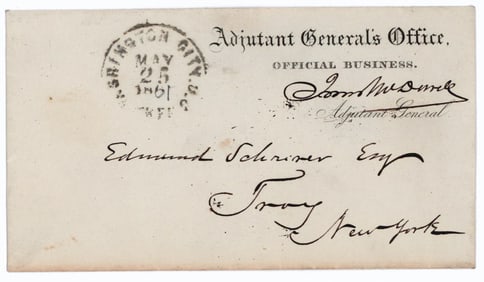 Adjutant General's Office.
OFFICIAL BUSINESS.
Adjutant General
WASHINGTON CITY D.C.
MAY
25
1861
FREE
Edmund Schriver Esq
Troy
New York